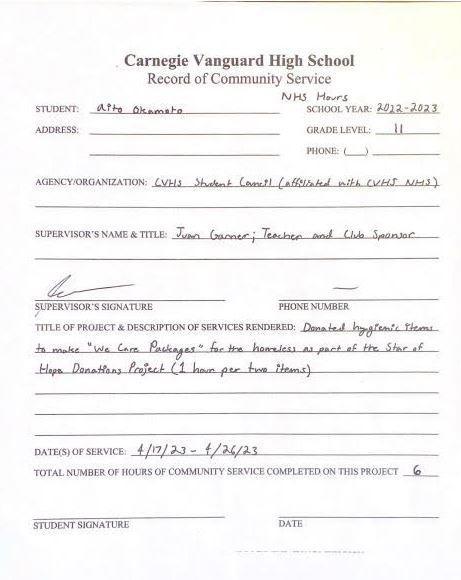 Carnegie Vanguard High School
Record of Community Service
NHS Hours
STUDENT: Aito Okamoto SCHOOL YEAR: 2022-2023
ADDRESS: GRADE LEVEL: 11
PHONE: ( )
AGENCY/ORGANIZATION: CVHS Student Council (affiliated with CVHS NHS)
SUPERVISOR'S NAME & TITLE: Juan Garner; Teacher and Club Sponsor
SUPERVISOR'S SIGNATURE PHONE NUMBER
TITLE OF PROJECT & DESCRIPTION OF SERVICES RENDERED: Donated hygienic items
to make "We Care Packages" for the homeless as part of the Star of
Hope Donations Project (1 hour per two items)
DATE(S) OF SERVICE: 4/17/23 - 4/26/23
TOTAL NUMBER OF HOURS OF COMMUNITY SERVICE COMPLETED ON THIS PROJECT 6
STUDENT SIGNATURE DATE